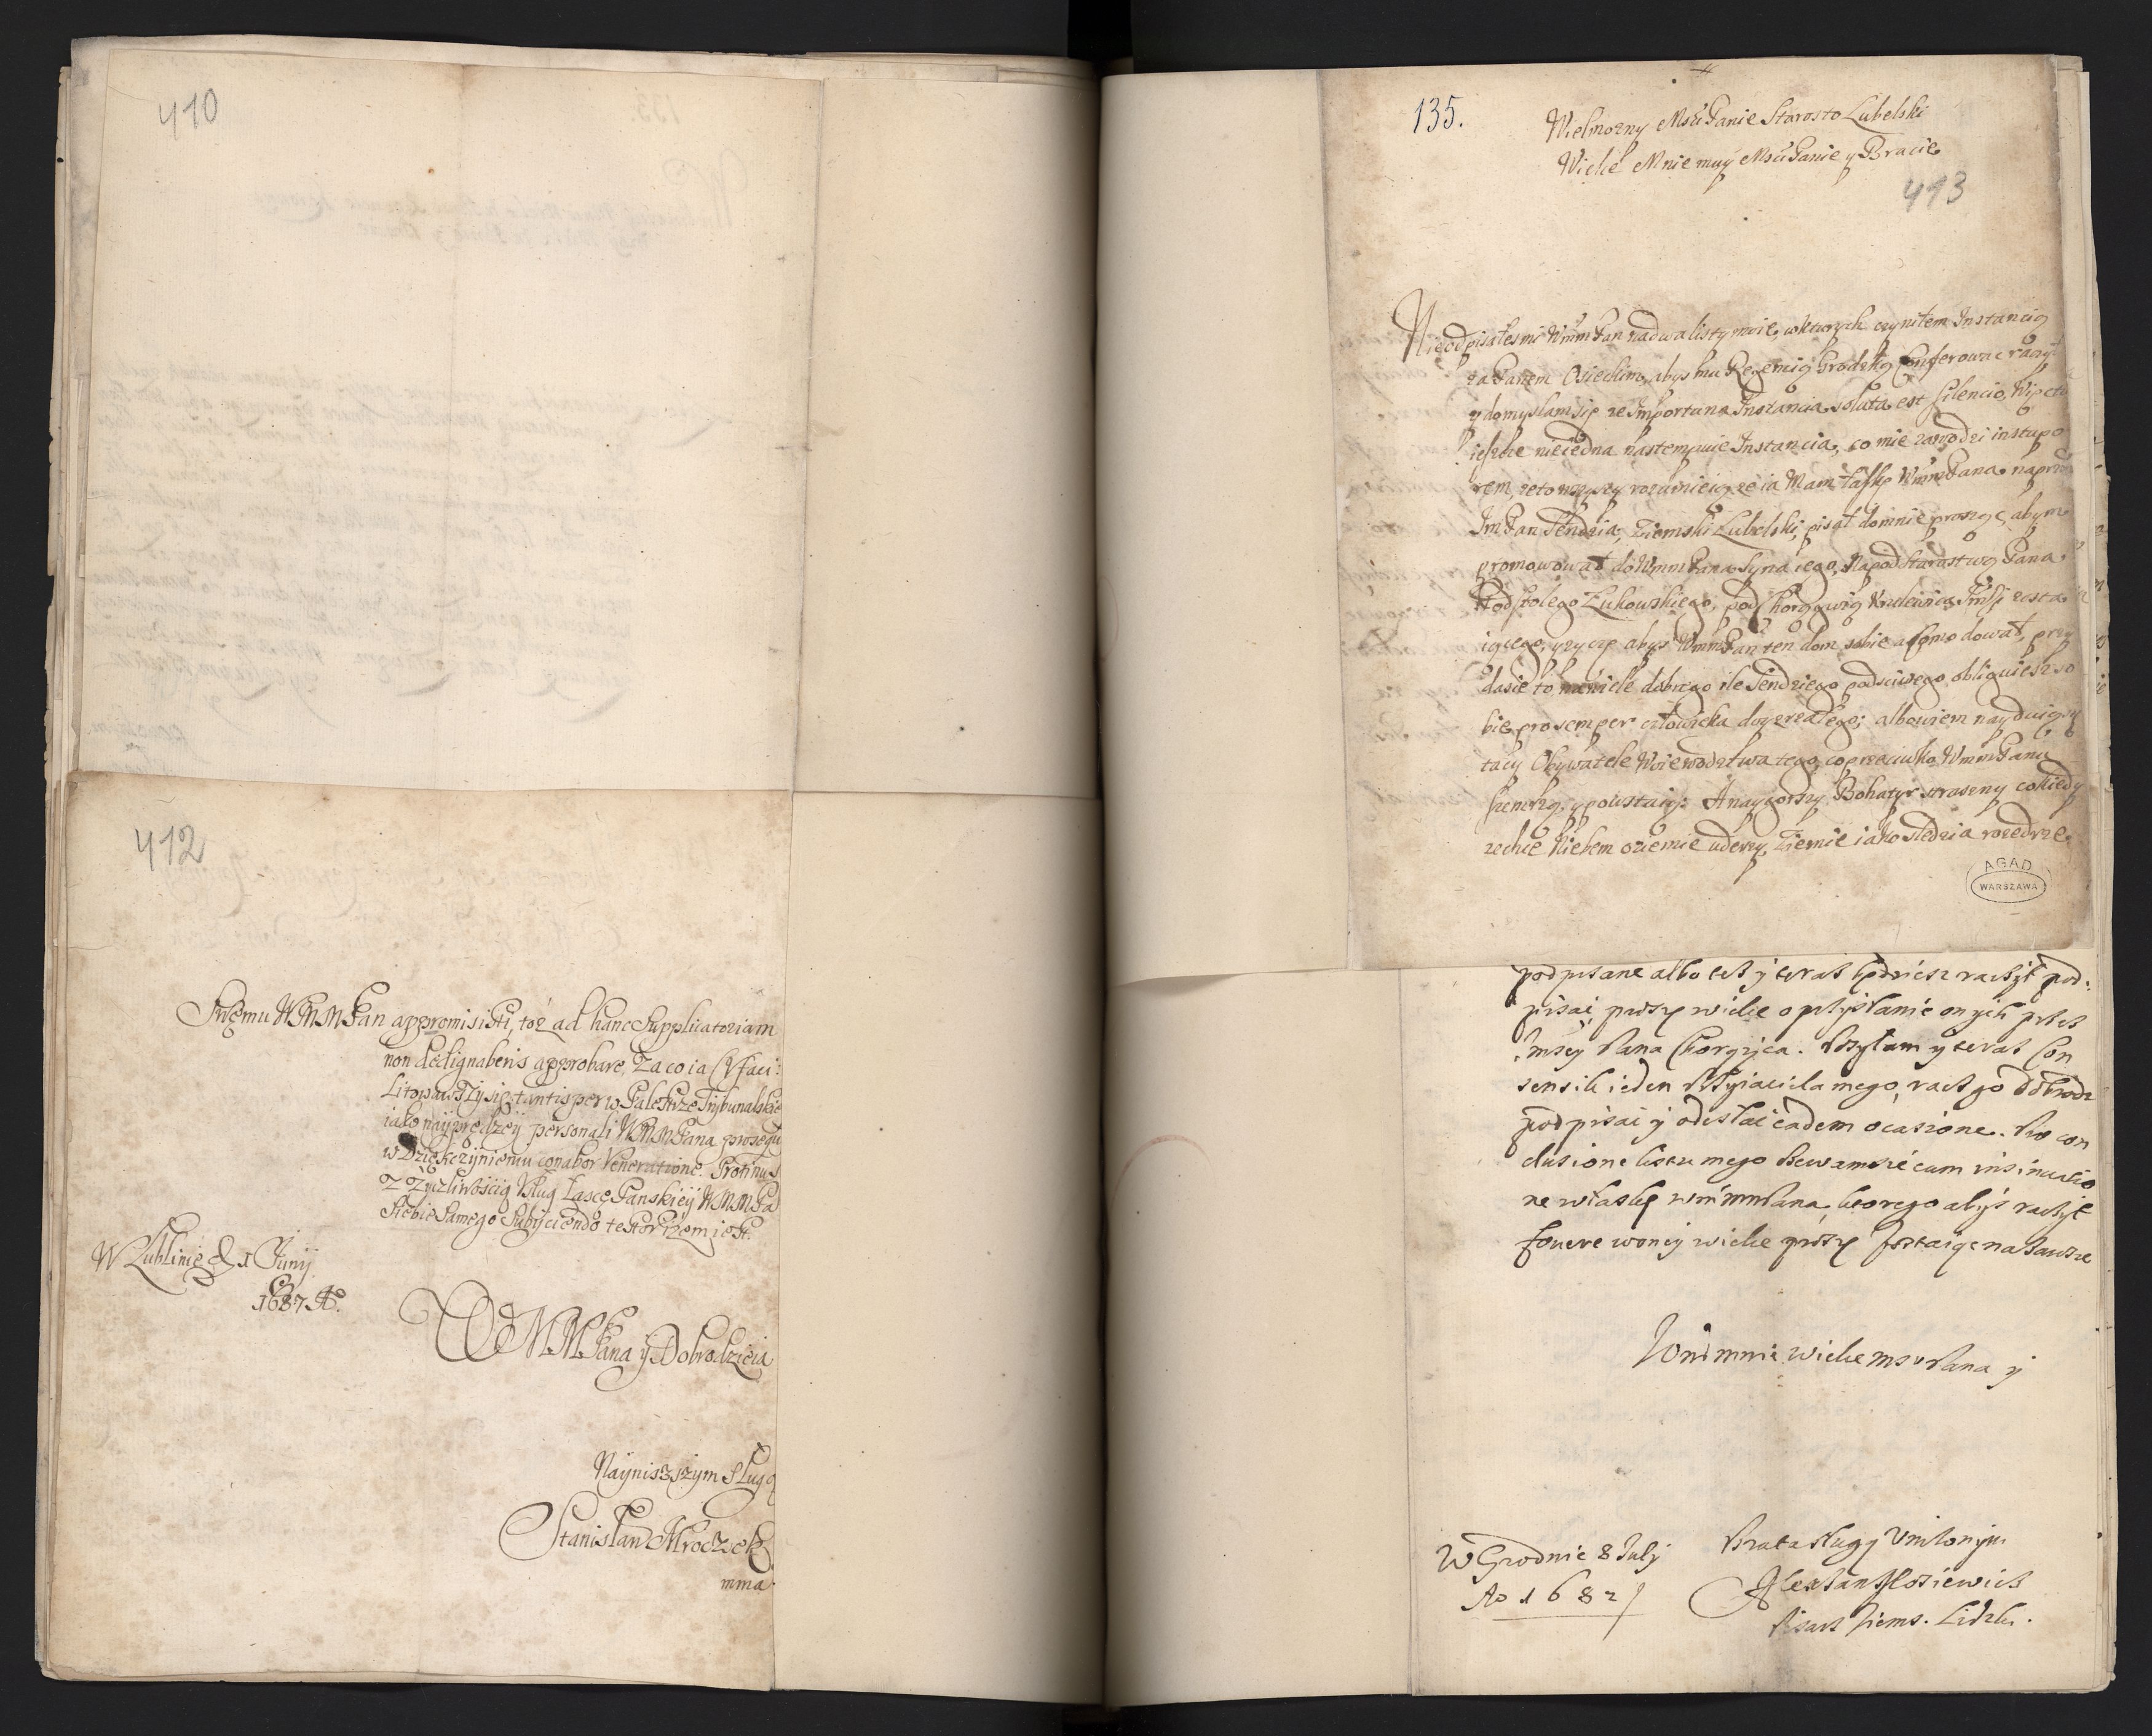 410
412
Snęmu WMMPan appromisisti, toż ad hanc Supplicatoriam
non dedignaberis approbare, Za co ia
Litowawszy się tantisper w Palestrze Trybunalskie
iako nayprędzey personali WMMPana prosequi
w Dziękczynieniu conabor Veneratione. Protinus
Z Zyczliwością Usług Łasce Panskiey WMMPa
Siebie Samego Subijciendo testor żem jest.
W Lublinie d 1 Junij
1687 A.
WMMPana y Dobrodzieia
Nayniszszym Slugą
Stanisław Mroczek
mma
135.
Wielmozny Msći Panie Starosto Lubelski
Wielce Mnie muy Msći Panie y Bracie
413
Nie odpisałes mi WmmPan na dwa listy moie, wktorych czyniłem Instancią
za Panem Osieckim, abys mu Regemią Grodzką Conferowac raczył
y domyslam się ze Importuna Instancia soluta est silencio, Więc to
ieszcze nieiedna nastempuie Instancia, co mie zawodzi in stupo
rem, ze to wszyscy rozumieią ze ia Mam łaskę WmmPana naprzod
Im Pan Sendzia Ziemski Lubelski, pisał domnie prosząc, abym
promowował do WmmPana Syna iego, Na podstarastwo Pana
Podstolego Łukowskiego, pod Chorągwią Krolewica Imsci zosta
iącego, y zyczę abys WmmPan ten dom sobie akomodował, przy
da sie to na wiele dobrego ile Sendziego podsciwego obliguiesz so
bie pro semper człowieka doyrzałego; albowiem nayduią sie
tacy Obywatele Woiewodztwa tego, co przeciwko WmmPanu
szemrzą y powstaią: A naygorszy Bohatyr straszny co kiedy
zechce Kiebem o ziemie uderzy, Ziemie iako sledzia rozedrze.
AGAD
WARSZAWA
podpisane albo tesz y teraz będziesz raczył pod:
pisać, proszę wielce o przysłanie onych przez
Imsci Pana Chorążyca. Posyłam y teraz Con
sensik ieden Przyiaciela mego, racz go dobrodz
podpisać y odesłać eadem ocasione. Pro con
clusione listu mego cum insinuatio
ne w łaskę wmmmPana, ktorego abyś raczył
fovere w oney wielce proszę zostaiąc na zawsze
Wm mmie wielce msci Pana y
Brata Slugą Unizonym
W Grodnie 8 Julij
Ao 1682
Pisarz Ziems. Lidzki.